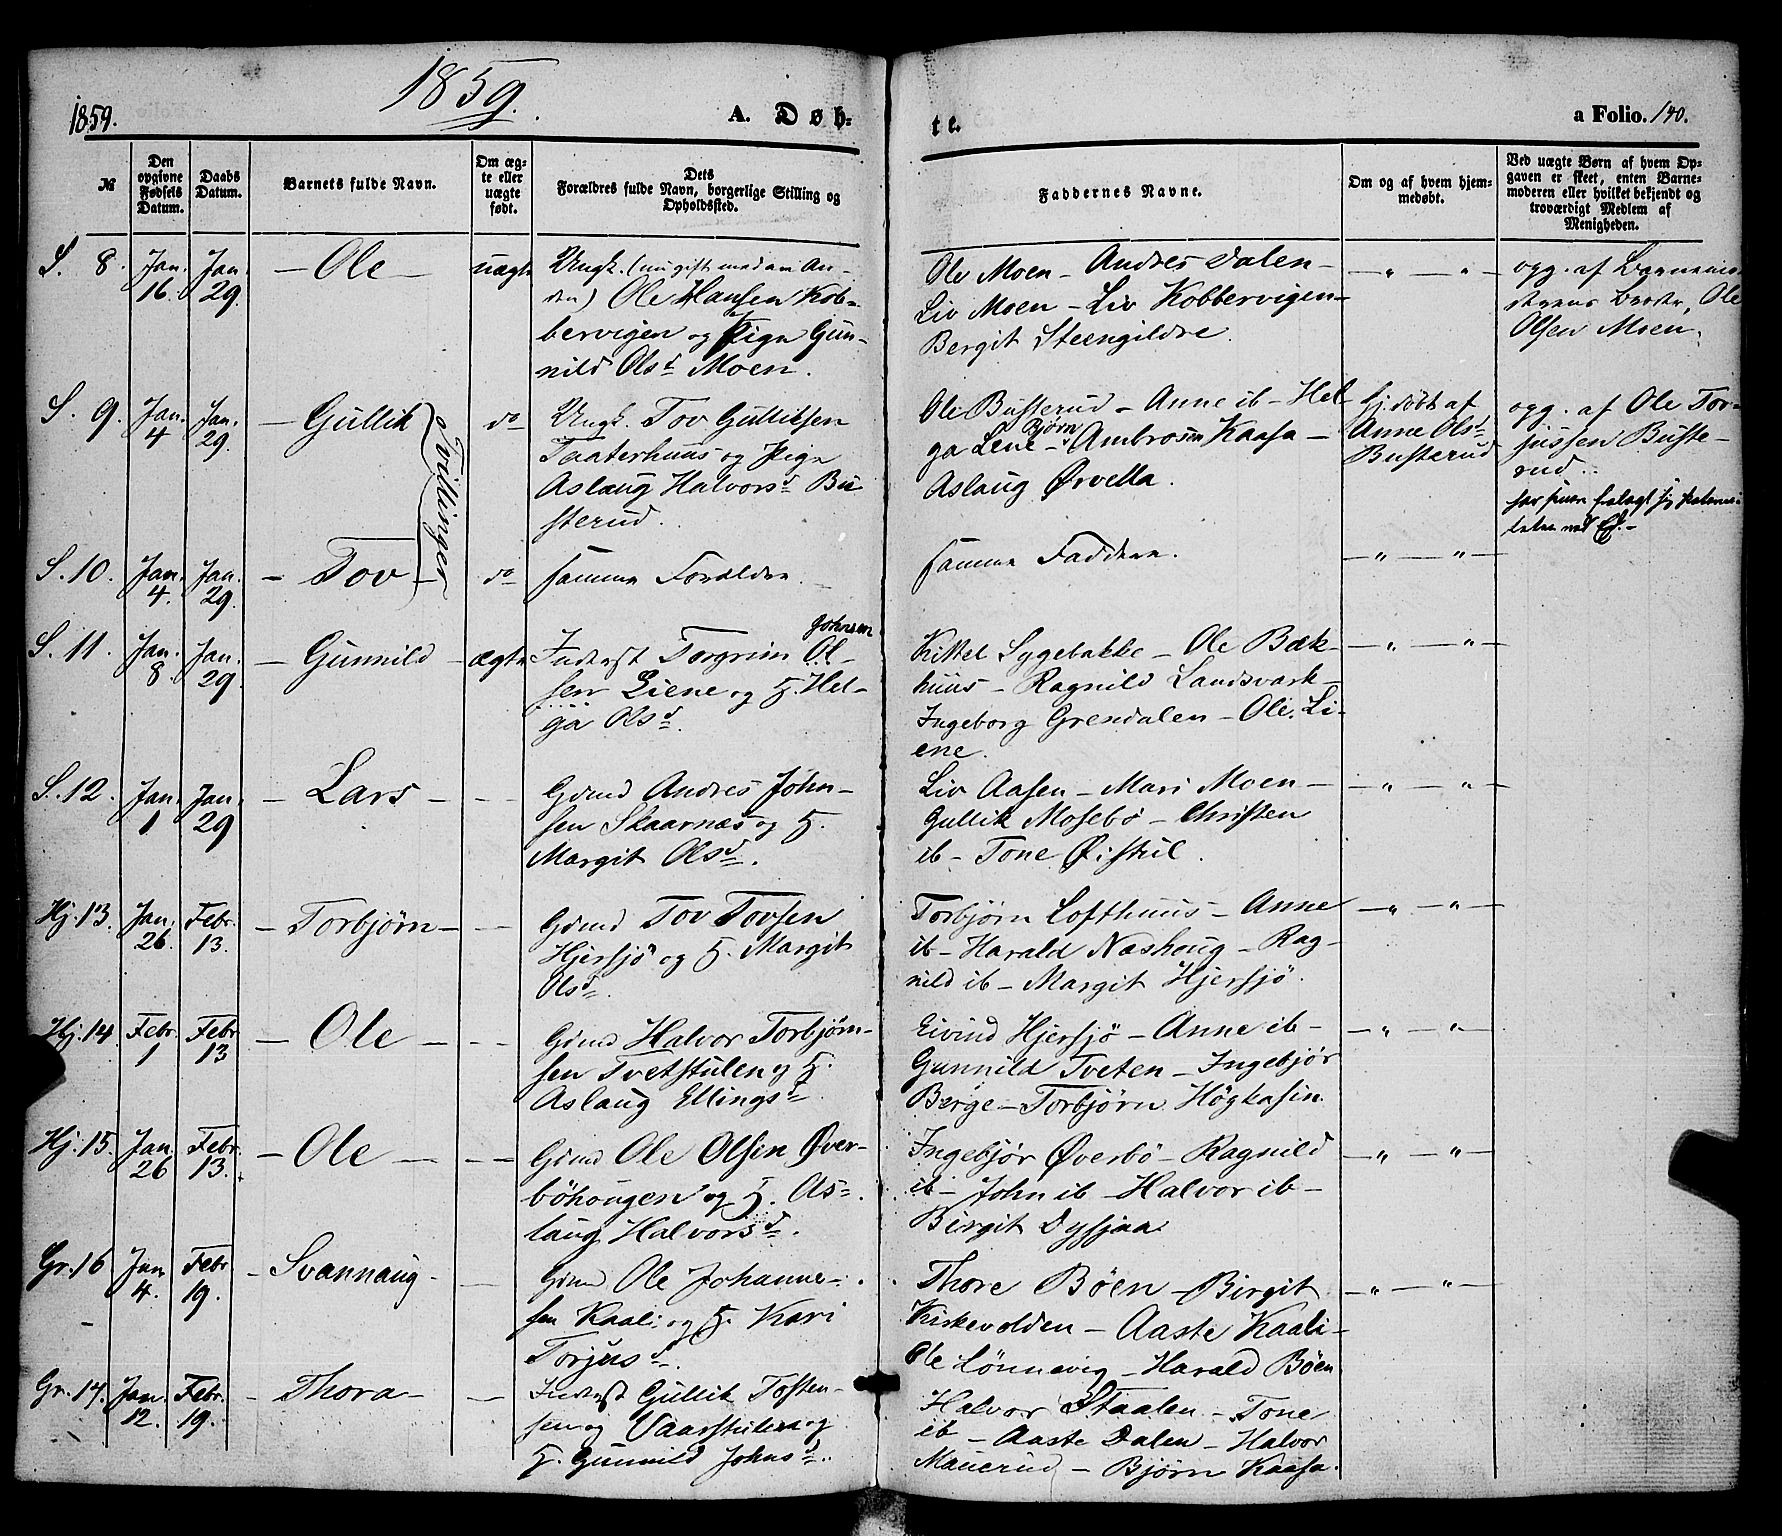 1859.
1859.
A. Døb-
te.
a Folio. 140.
№
Den opgivne Fødsels Datum.
Daabs Datum.
Barnets fulde Navn.
Om ægte eller uægte født.
Dets Forældres fulde Navn, borgerlige Stilling og Opholdssted.
Faddernes Navne.
Om og af hvem hjemmedøbt.
Ved uægte Børn af hvem Opgaven er skeet, enten Barnemoderen eller hvilket bekjendt og troværdigt Medlem af Menigheden.
S. 8. Jan. 16. Jan. 29. – Ole – uægte
Ungk. (nu gift med en An-
den) Ole Hansen Kob-
bervigen og Pige Gun-
nild Olsd. Moen.
Ole Moen – Andres Dalen –
Liv Moen – Liv Kobbervigen –
Bergit Steengildre.
– „ – „ –
opg. af Barnemo-
derens Broder, Ole
Olsen Moen.
S. 9. Jan. 4 Jan. 29. – Gullik do
Tvillinger
Ungk. Tov Gulliksen
Taaterhuus og Pige
Aslaug Halvorsd. Bu
sterud.
Ole Busterud – Anne ib – Hel
ga Lene – Bjørn Ambrosen Kaasa –
Aslaug Ørvella.
hj. døbt af
Anne Olsd.
Busterud
opg. af Ole Tor-
jussen Buste-
rud.
S. 10. Jan. 4. Jan. 29. – Tov – do
samme Forældre. –
samme Faddere.
– „ – „ –
S. 11. Jan. 8. Jan. 29. – Gunnild – ægte
Inderst Torgrim Johnsen Ol-
sen Liene og H. Hel-
ga Olsd.
Kittel Sygebakke – Ole Bæk-
huus – Ragnild Landsvark –
Ingeborg Grendalen – Ole Li-
ene.
– „ – „ –
S. 12. Jan. 1 Jan. 29 – Lars – – –
Gdmd Andres John-
sen Skaarnæs og H.
Margit Olsd.
Liv Aasen – Mari Moen –
Gullik Mosebø – Christen
ib – Tone Øistul.
– „ – „ –
Hj. 13. Jan. 26. Febr. 13. – Torbjørn – –
Gdmd Tov Tovsen
Hjersjø og H. Margit
Olsd.
Torbjørn Lofthuus – Anne
ib – Harald Næshoug – Rag-
nild ib – Margit Hjersjø.
– „ – „ –
Hj. 14. Febr. 1 Febr 13 – Ole – – –
Gdmd Halvor Torbjørn-
sen Tvetstulen og H.
Aslaug Ellingsd.
Eivind Hjersjø – Anne ib –
Gunnild Tveten – Ingebjør
Berge – Torbjørn Högkasin
– „ – „ –
Hj. 15. Jan. 26 Febr. 13. – Ole – – –
Gdmd Ole Olsen Øver-
böhougen og H. As-
laug Halvorsd.
Ingebjør Øverbö – Ragnild
ib – John ib – Halvor ib –
Birgit Dysjaa
– „ – „ –
Gr. 16 Jan 4. Febr 19. – Svannaug – –
Gdmd Ole Johanne-
sen Kaali og H. Kari
Torjusd.
Thore Böen – Birgit
Kirkevolden – Aaste Kaali –
Ole Lönnevig – Harald Böen
– „ – „ –
Gr. 17. Jan. 12. Febr. 19. – Thora – –
Inderst Gullik Tosten-
sen Vaarstulen og
H. Gunnild Johnsd.
Halvor Staalen – Tone
ib – Aaste Dalen – Halvor
Mauerud – Bjørn Kaasa.